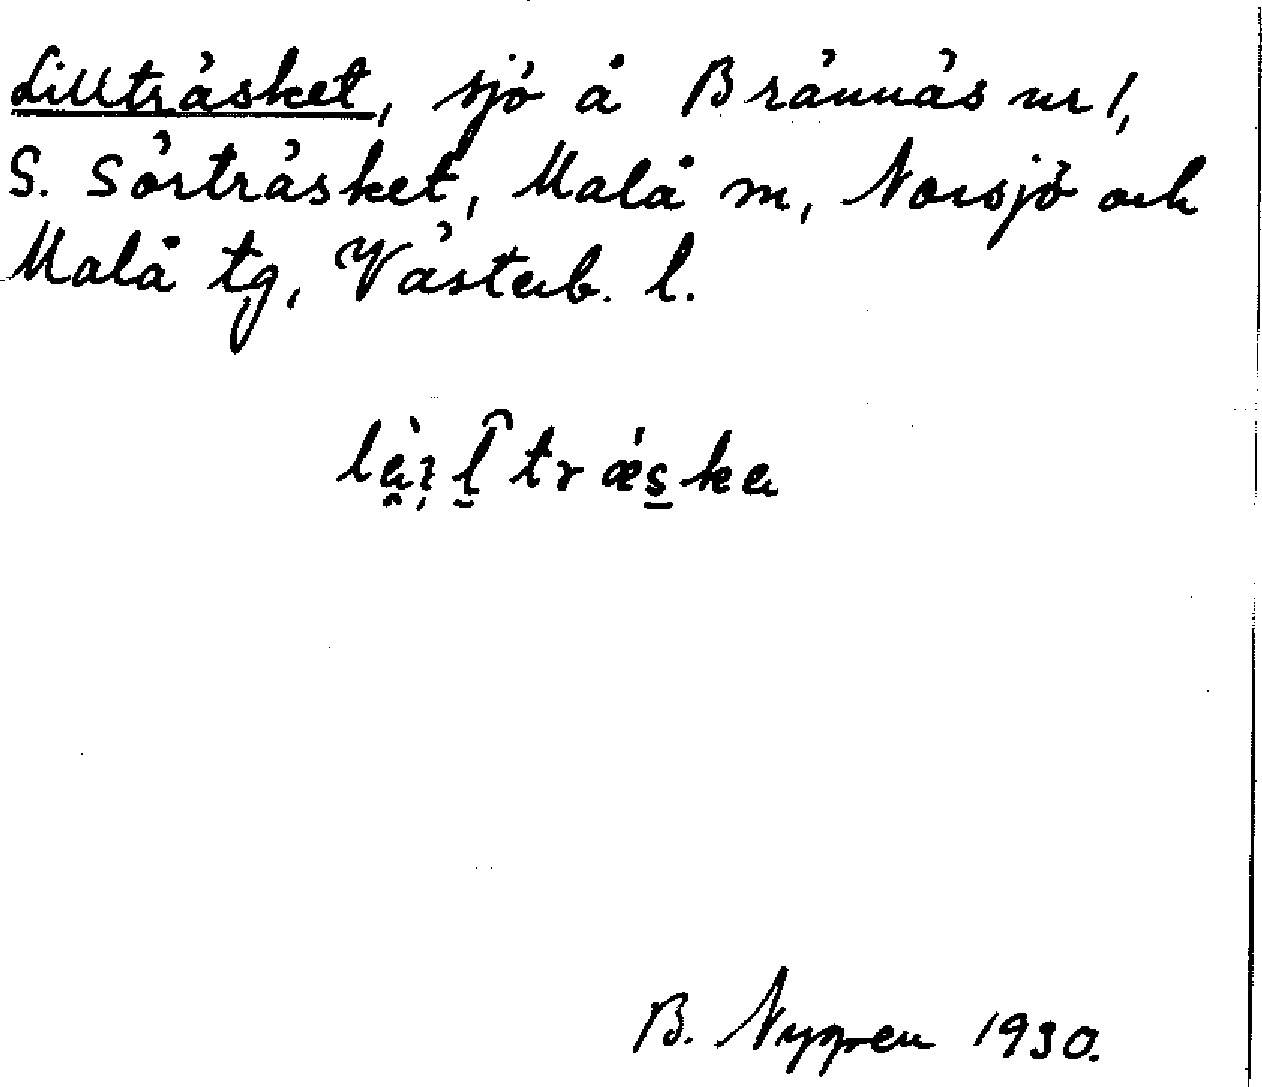 Lillträsket, sjö å Brännäs nr 1,
S. Sörträsket, Malå m, Norsjö och
Malå tg, Västerb. l.
B. Nygren 1930.